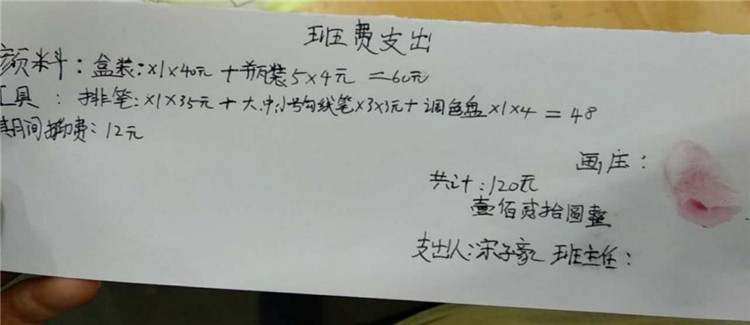 班费支出
颜料：盒装：×1×40元＋瓶装5×4元＝60元
工具：排笔：×1×35元＋大.中.小号勾线笔×3×3元＋调色盘×1×4＝48
期间 费：12元
画庄：
共计：120元
壹佰贰拾圆整
支出人：宋子豪 班主任：